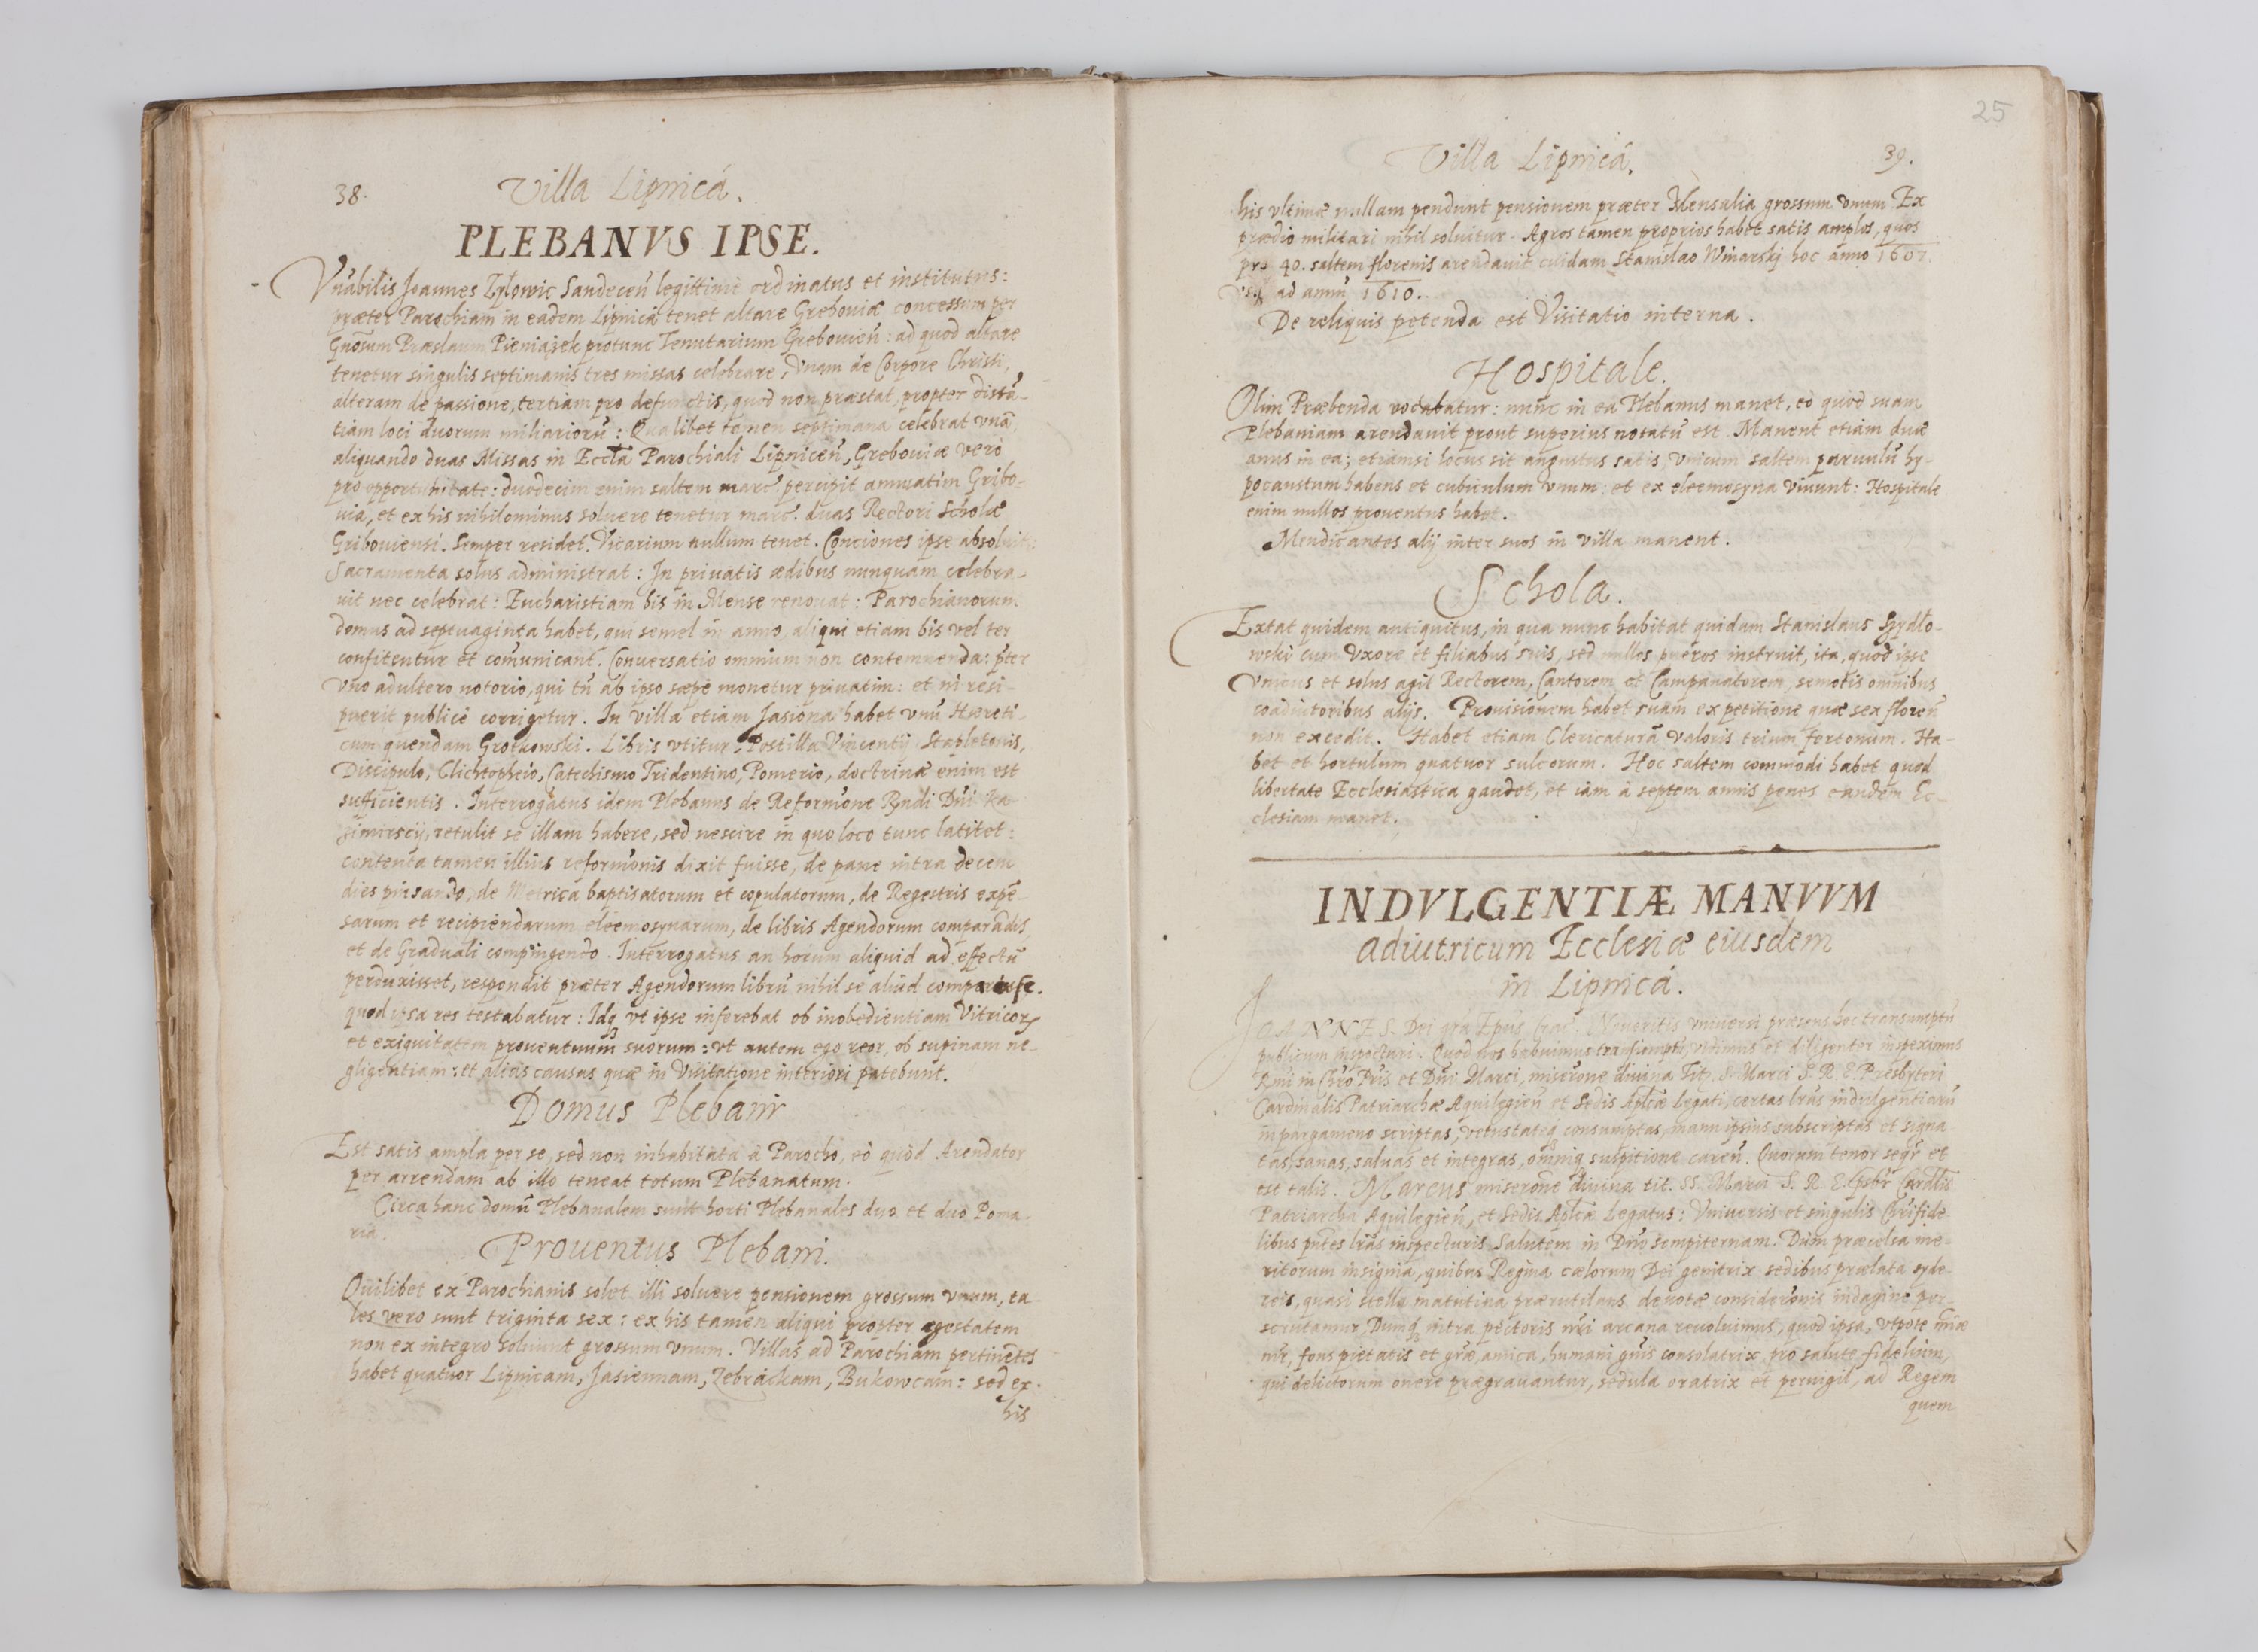 38.
Villa Lipnicá.
PLEBANVS IPSE.
Vnabilis Joannes Zylowic Sandeceñ legittime ordinatus et institutus:
præter Parochiam in eadem Lipnicá tenet altare Greboviæ concessum per
Gnosum Præslaum Pieniążek protunc Tenutarium Grebovieñ: ad quod altare
tenetur singulis septimanis tres missas celebrare, Vnam de Corpore Christi,
alteram de passione, tertiam pro defunctis, quod non præstat, propter distã-
tiam loci duorum miliariorũ: Qualibet tamen septimana celebrat vnã,
aliquando duas Missas in Eccła Parochiali Lipniceñ, Greboviæ verò
pro opportunitate: duodecim enim saltem marc. percipit annuatim Gribo-
viâ, et ex his nihilominus soluere tenetur marc. duas Rectori Scholæ
Griboviensi. Semper residet. Vicarium nullum tenet. Conciones ipse absoluit:
Sacramenta solus administrat: In priuatis ædibus nunquam celebra-
uit nec celebrat: Eucharistiam bis in Mense renouat: Parochianorum
domus ad septuaginta habet, qui semel in anno, aliqui etiam bis vel ter
confitentur et comunicant. Conuersatio omnium non contemnenda: pter
vno adultero notorio, qui tñ ab ipso sæpè monetur priuatim: et ni resi-
puerit publicè corrigetur. In villa etiam Jasiona habet vnũ Hæreti-
cum quendam Grotkowski. Libris vtitur, Postilla Vincentij Stapletonis,
Discipulo, Clichtopheio, Catechismo Tridentino, Pomerio, doctrinæ enim est
sufficientis. Interrogatus idem Plebanus de Reformõne Rndi Dñi Ka-
zimirscij, retulit se illam habere, sed nescire in quo loco tunc latitet:
contenta tamen illius reformõnis dixit fuisse, de pane intra decem
dies pinsando, de Metrica baptisatorum et copulatorum, de Regestris expẽ-
sarum et recipiendarum eleemosynarum, de libris Agendorum comparãdis,
et de Graduali compingendo. Interrogatus an horum aliquid ad effectũ
perduxisset, respondit præter Agendorum librũ nihil se aliud comparasse.
quod ipsa res testabatur: Idq vt ipse inferebat ob inobedientiam Vitricorũ
et exiguitatem prouentuum suorum: vt autem ego reor, ob supinam ne-
gligentiam: et alias causas quæ in Visitatione interiori patebunt.
Domus Plebani
Est satis ampla per se, sed non inhabitata à Parocho, eò quòd Arendator
per arrendam ab illo teneat totum Plebanatum.
Circa hanc domũ Plebanalem sunt horti Plebanales duo et duo Poma-
ria.
Prouentus Plebani.
Quilibet ex Parochianis solet illi soluere pensionem grossum vnum, ta-
les vero sunt triginta sex: ex his tamen aliqui propter egestatem
non ex integro soluunt grossum vnum. Villas ad Parochiam pertinẽtes
habet quatuor Lipnicam, Jasiennam, Zebrackam, Bukowcam: sed ex
his
25
Villa Lipnicá.
39.
his vltimæ nullam pendunt pensionem præter Mensalia grossum vnum. Ex
prædio militari nihil soluitur. Agros tamen proprios habet satis amplos, quos
pro 40. saltem florenis arendauit cuidam Stanislao Winarskj hoc anno 1607.
vsq ad annũ 1610.
De reliquis petenda est Visitatio interna.
Hospitale.
Olim Præbenda vocabatur: nunc in ea Plebanus manet, eò quòd suam
Plebaniam arendauit prout superius notatũ est. Manent etiam duæ
anus in ea; etiamsi locus sit angustus satis, vnicum saltem paruulũ hy-
pocaustum habens et cubiculum vnum: et ex eleemosyna viuunt: Hospitale
enim nullos prouentus habet.
Mendicantes alij inter suos in villa manent.
Schola.
Extat quidem antiquitus, in qua nunc habitat quidam Stanislaus Szydło-
wski cum vxore et filiabus suis, sed nullos pueros instruit, ita, quod ipse
vnicus et solus agit Rectorem, Cantorem et Campanatorem, semotis omnibus
coadiutoribus alijs. Prouisionem habet suam ex petitione quæ sex floreñ
non excedit. Habet etiam Clericaturã valoris trium fertonum. Ha-
bet et hortulum quatuor sulcorum. Hoc saltem commodi habet quod
libertate Ecclesiastica gaudet, et iam à septem annis penes eandem Ec-
clesiam manet.
INDVLGENTIÆ MANVVM
adiutricum Ecclesiæ eiusdem
in Lipnicá.
JOANNES Dei gra Epus Crac. Noueritis vniuersi præsens hoc transumptũ
publicum inspecturi. Quod nos habuimus transumpti, vidimus et diligenter inspeximus
Rmi in Chro Pris et Dñi Marci, miserõne diuina Tit. S. Marci S. R. E. Presbyteri
Cardinalis Patriarchæ Aquilegieñ et Sedis Aplicæ Legati, certas lras indulgentiarũ
in pargameno scriptas, vetustateq consumptas, manu ipsius subscriptas et signa
tas, sanas, saluas et integras, omniq suspitione careñ. Quorum tenor seqr et
est talis. Marcus miserõne diuina tit. SS. Marci S. R. E. Psbr Cardlis
Patriarcha Aquilegieñ, et Sedis Aplicæ Legatus: Vniuersis et singulis Chrifide-
libus pntes lras inspecturis Salutem in Dño sempiternam. Dum præcelsa me-
ritorum insignia, quibus Regina cælorum Dei genitrix sedibus prælata syde-
reis, quasi stella matutina prærutilans, deuotæ considerõnis indagine per-
scrutamur, Dumq intra pectoris nri arcana reuoluimus, quod ipsa, vtpote miæ
mr, fons pietatis et græ, amica, humani gñis consolatrix, pro salute fidelium,
qui delictorum onere prægrauantur, sedula oratrix et peruigil, ad Regem
quem